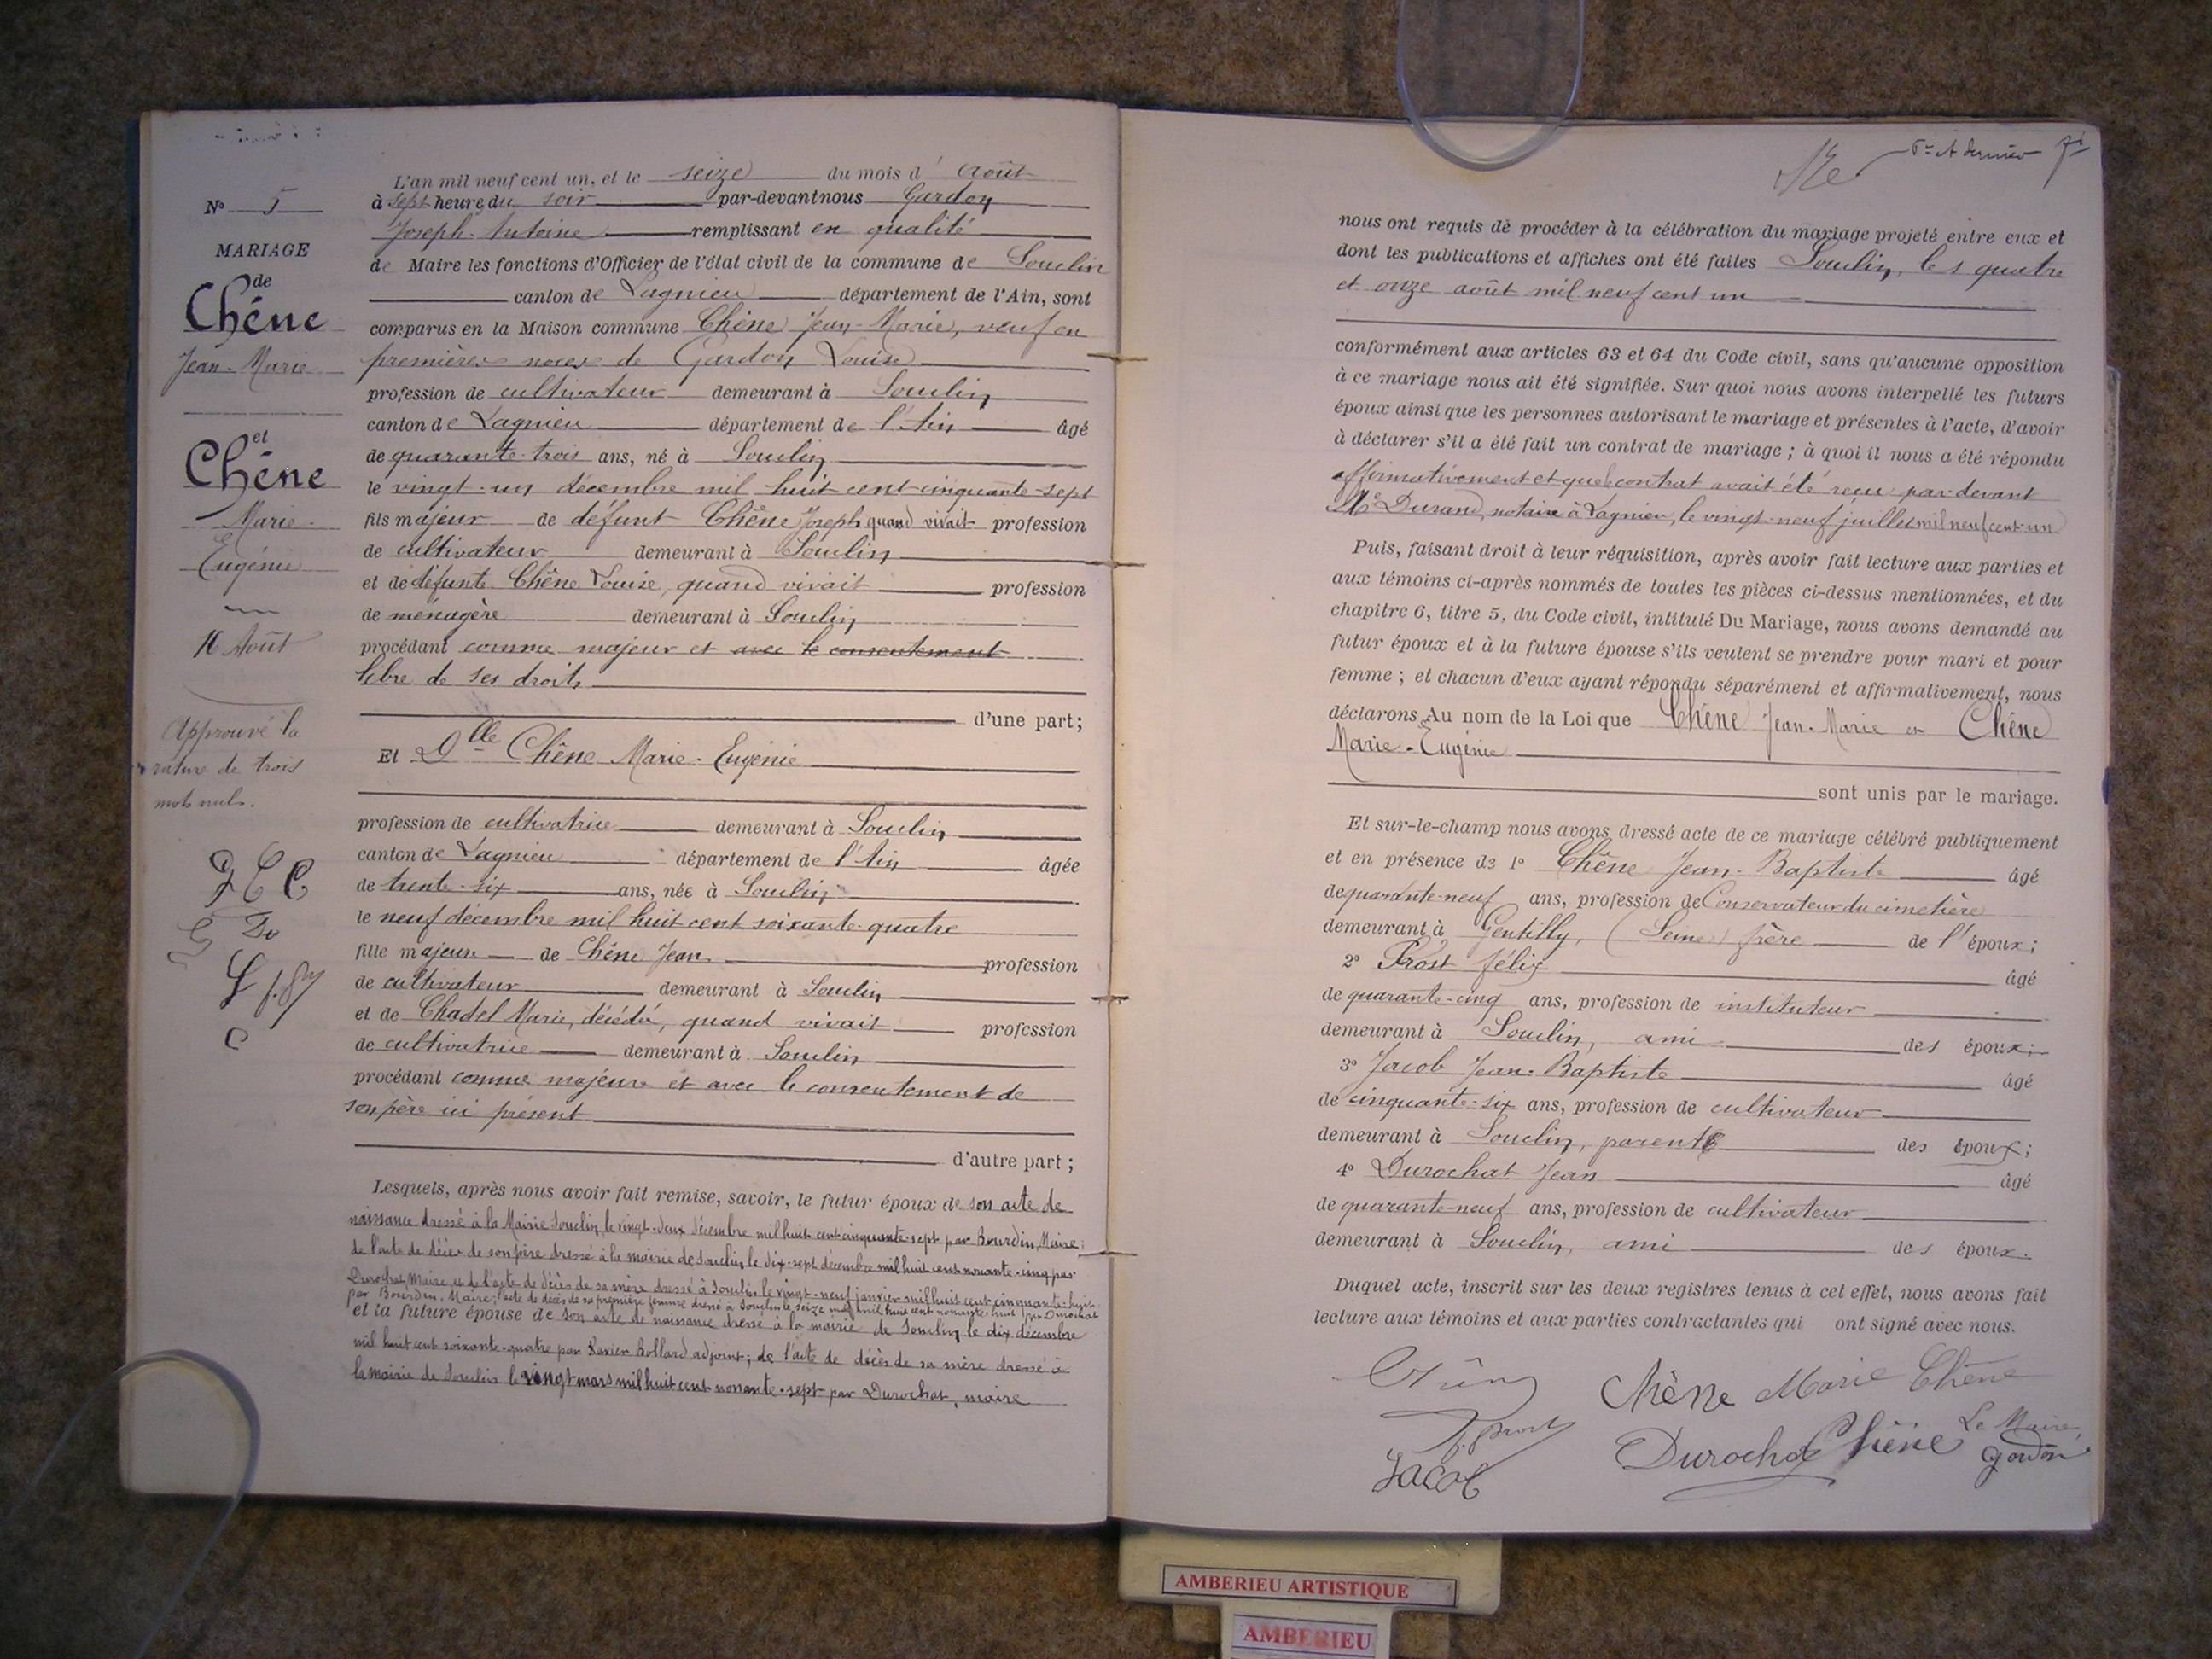 N° 5
MARIAGE
de
Chêne
Jean-Marie
et
Chêne
Marie-
Eugénie
16 Août
Approuvé la
rature de trois
mots nuls.
L'an mil neuf cent un, et le seize du mois d' Août
à sept heures du soir par-devant nous Gardon
Joseph-Antoine remplissant en qualité
de Maire les fonctions d'Officier de l'état civil de la commune de Souclin
canton de Lagnieu département de l'Ain, sont
comparus en la Maison commune Chêne Jean-Marie, veuf en
premières noces de Gardon Louise
profession de cultivateur demeurant à Souclin
canton de Lagnieu département de l'Ain âgé
de quarante-trois ans, né à Souclin
le vingt-un décembre mil huit cent cinquante-sept
fils majeur de défunt Chêne Joseph quand vivait profession
de cultivateur demeurant à Souclin
et de défunte Chêne Louise, quand vivait profession
de ménagère demeurant à Souclin
procédant comme majeur et avec le consentement
libre de ses droits
d'une part;
Et Dlle Chêne Marie-Eugénie
profession de cultivatrice demeurant à Souclin
canton de Lagnieu département de l'Ain âgée
de trente-six ans, née à Souclin
le neuf décembre mil huit cent soixante-quatre
fille majeure de Chêne Jean profession
de cultivateur demeurant à Souclin
et de Chadel Marie, décédée, quand vivait profession
de cultivatrice demeurant à Souclin
procédant comme majeure et avec le consentement de
son père ici présent
d'autre part;
Lesquels, après nous avoir fait remise, savoir, le futur époux de son acte de
naissance dressé à la Mairie Souclin, le vingt-deux décembre mil huit cent cinquante-sept par Bourdin, Maire;
de l'acte de décès de son père dressé à la mairie de Souclin le dix-sept décembre mil huit cent nonante-cinq par
Durochat Maire et de l'acte de décès de sa mère dressé à Souclin le vingt-neuf janvier mil huit cent cinquante-huit
par Bourdin, Maire; l'acte de décès de sa première femme dressé à Souclin le seize mai mil huit cent nonante-huit par Durochat
et la future épouse de son acte de naissance dressé à la mairie de Souclin le dix décembre
mil huit cent soixante-quatre par Xavier Rollard adjoint; de l'acte de décès de sa mère dressé à
la mairie de Souclin le vingt mars mil huit cent nonante-sept par Durochat, maire
nous ont requis de procéder à la célébration du mariage projeté entre eux et
dont les publications et affiches ont été faites Souclin, les quatre
et onze août mil neuf cent un
conformément aux articles 63 et 64 du Code civil, sans qu'aucune opposition
à ce mariage nous ait été signifiée. Sur quoi nous avons interpellé les futurs
époux ainsi que les personnes autorisant le mariage et présentes à l'acte, d'avoir
à déclarer s'il a été fait un contrat de mariage; à quoi il nous a été répondu
affirmativement et que le contrat avait été reçu par devant
Me Durand, notaire à Lagnieu, le vingt-neuf juillet mil neuf cent-un
Puis, faisant droit à leur réquisition, après avoir fait lecture aux parties et
aux témoins ci-après nommés de toutes les pièces ci-dessus mentionnées, et du
chapitre 6, titre 5, du Code civil, intitulé Du Mariage, nous avons demandé au
futur époux et à la future épouse s'ils veulent se prendre pour mari et pour
femme; et chacun d'eux ayant répondu séparément et affirmativement, nous
déclarons Au nom de la Loi que Chêne Jean-Marie et Chêne
Marie-Eugénie
sont unis par le mariage.
Et sur-le-champ nous avons dressé acte de ce mariage célébré publiquement
et en présence de 1° Chêne Jean-Baptiste âgé
de quarante-neuf ans, profession de Conservateur du cimetière
demeurant à Gentilly, (Seine) frère de l'époux;
2° Prost félix âgé
de quarante-cinq ans, profession de instituteur
demeurant à Souclin, ami des époux;
3° Jacob Jean-Baptiste âgé
de cinquante-six ans, profession de cultivateur
demeurant à Souclin, parent des époux;
4° Durochat Jean âgé
de quarante-neuf ans, profession de cultivateur
demeurant à Souclin, ami des époux.
Duquel acte, inscrit sur les deux registres tenus à cet effet, nous avons fait
lecture aux témoins et aux parties contractantes qui ont signé avec nous.
Chêne Marie Chêne
f. Prost
Jacob
Durochat Chêne Le Maire
Gardon
AMBERIEU ARTISTIQUE
AMBERIEU